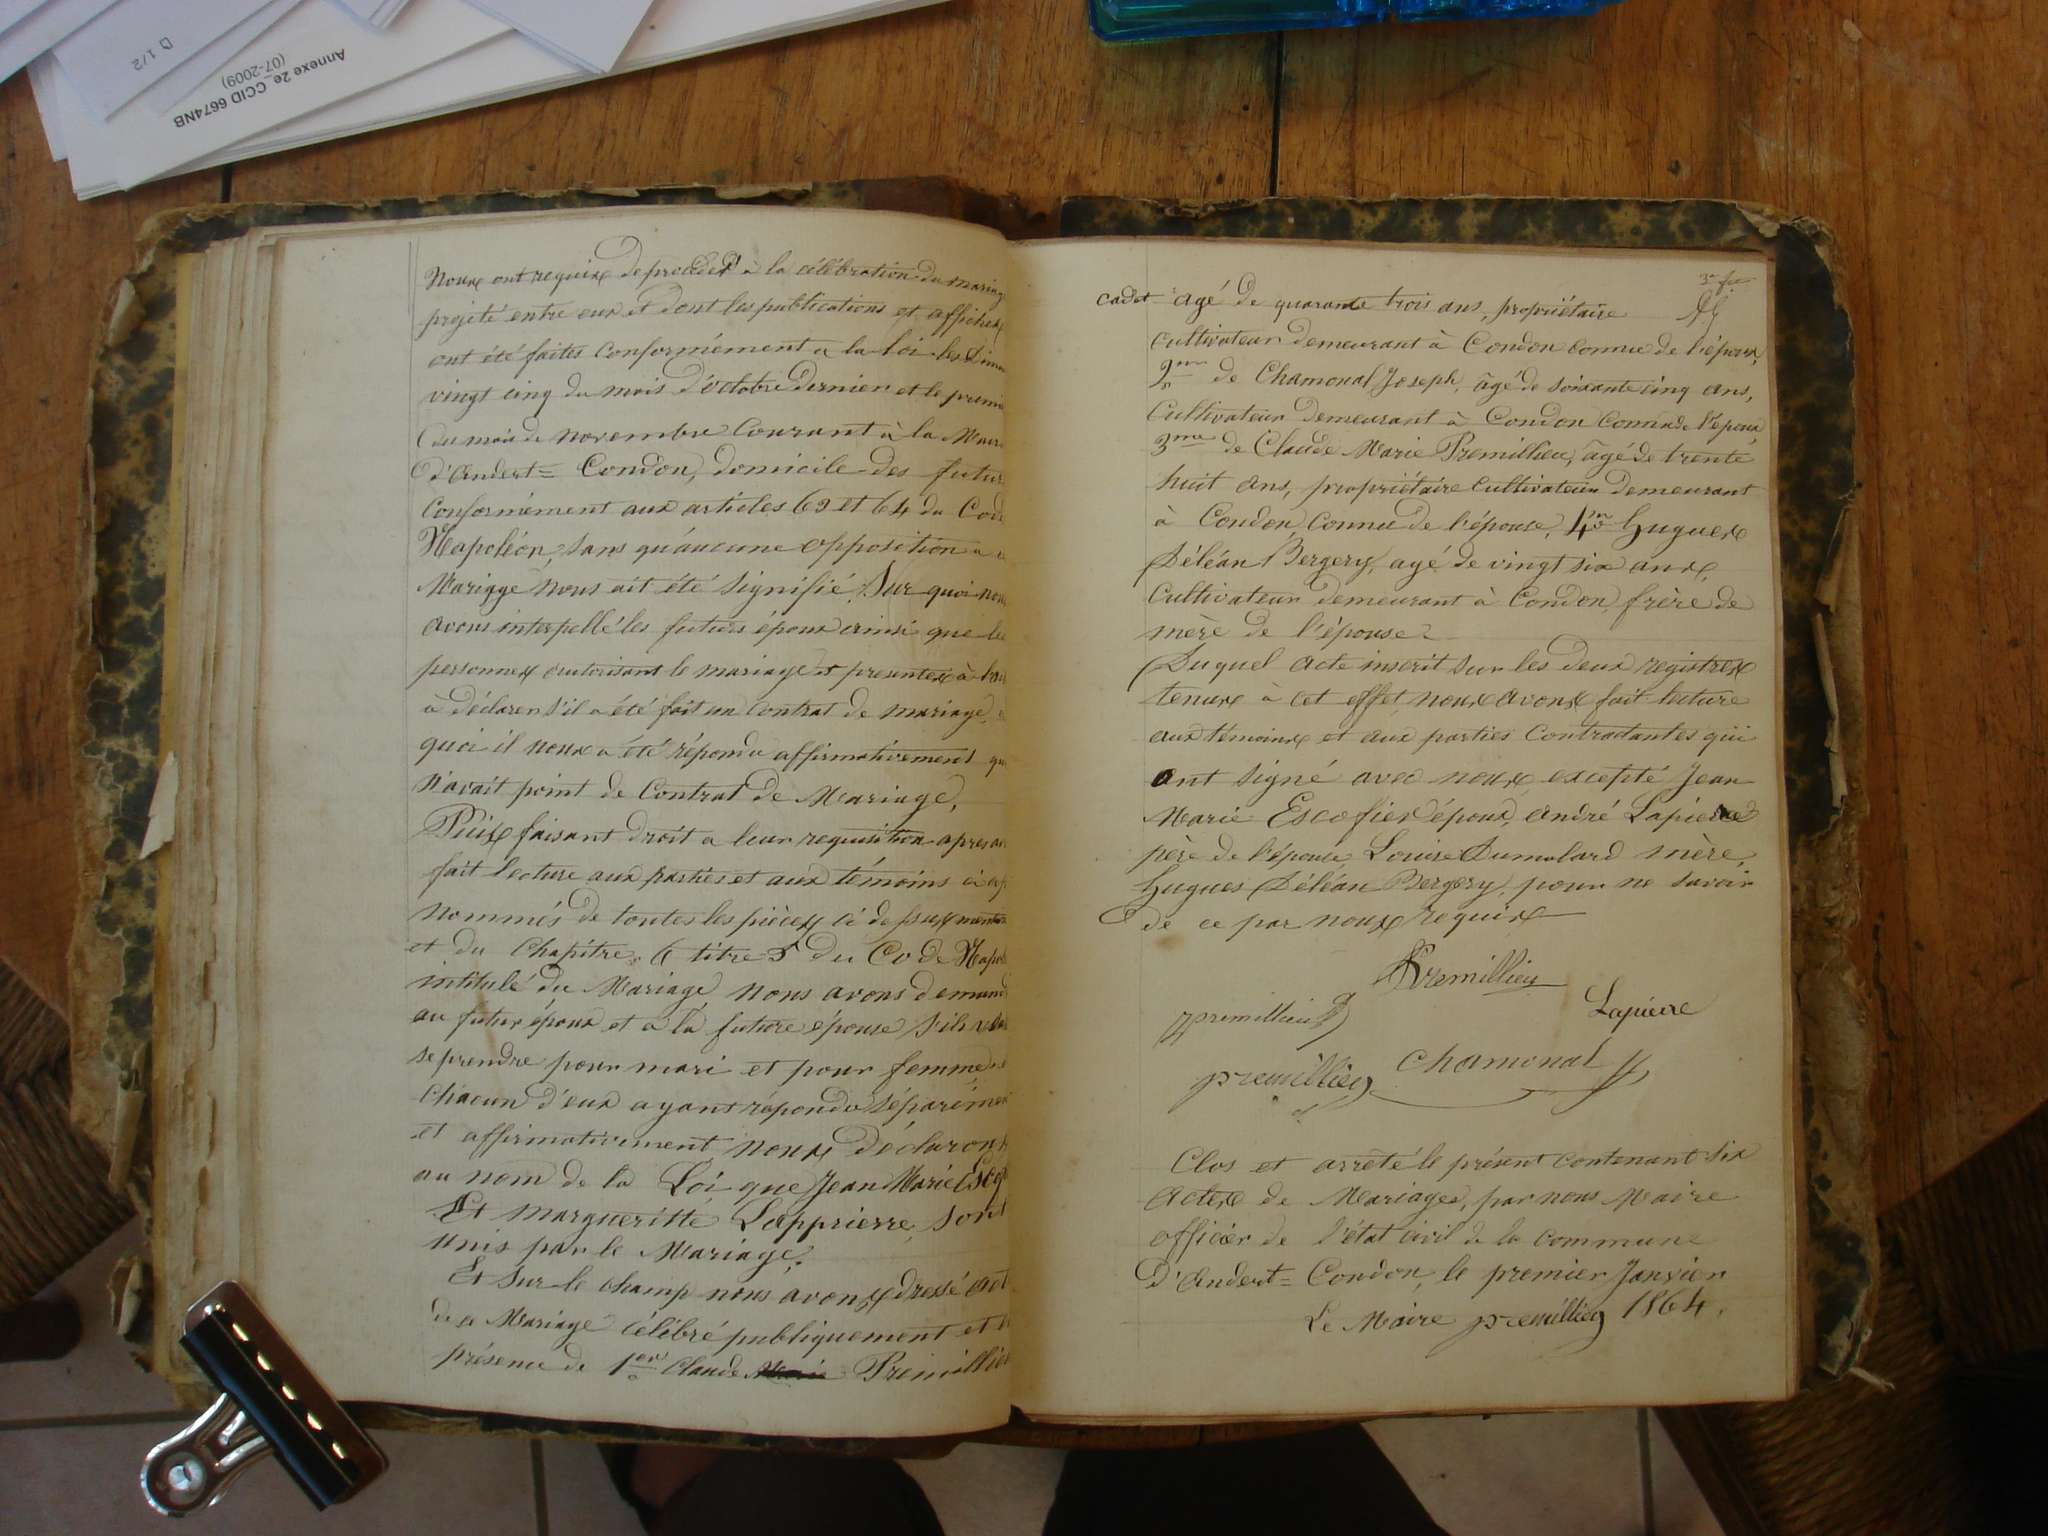 D 1/2
Annexe 2e_CCID 6674NB
(07-2009)
Nous ont requis de proceder à la célébration du mariag
projeté entre eux et dont les publications et affiches
ont été faites conformément a la loi les dima
vingt cinq du mois d'octobre dernier et le premi
du mois de novembre courant à la Mair
d'Andert = Condon, domicile des futur
Conformément aux articles 63 et 64 du Code
Napoléon, sans qu'aucune opposition a
Mariage nous ait été signifié. Sur quoi nou
avons interpellé les futurs époux ainsi que les
personnes autorisant le mariage et presentes à
à déclarer s'il a été fait un contrat de mariage,
quoi il nous a été répondu affirmativement qu
n'avait point de Contrat de Mariage,
Puis faisant droit a leur requisition apres av
fait lecture aux parties et aux témoins ci ap
nommés de toutes les pièces ci dessus mention
et du Chapitre 6 titre 5 du Code Napol
intitulé du Mariage nous avons demand
au futur époux et a la future épouse s'ils veul
se prendre pour mari et pour femme
Chacun d'eux ayant répondu séparémen
et affirmativement nous déclarons
au nom de la Loi que Jean Marie Escof
Et margueritte Lapprierre, sont
unis par le Mariage.
Et sur le champ nous avons dressé act
de ce Mariage célébré publiquement et e
présence de 1er Claude Marie Premillie
3e fu
cadet agé de quarante trois ans, propriétaire
cultivateur demeurant à Condon connu de l'époux,
2me de Chamonal Joseph, âgé de soixante cinq ans,
Cultivateur demeurant à Condon Connu de l'époux
3me de Claude Marie Premillieu, âgé de trente
huit ans, propriétaire Cultivateur demeurant
à Condon, Connu de l'épouse, 4me Hugues
Déléan Bergery, agé de vingt six ans,
Cultivateur demeurant à Condon, frère de
mère de l'épouse
Duquel acte inscrit sur les deux registres
tenus à cet effet, nous avons fait lecture
aux témoins et aux parties Contractantes qui
ont signé avec nous excepté Jean
Marie Escofier époux, andré Lapierre
père de l'épouse, Louise Dumolard mère,
Hugues Déléan Bergery, pour ne savoir
de ce par nous requis
Premillieu
premillieu
Lapierre
premillieu
Chamonal J
Clos et arrêté le présent contenant six
Actes de Mariages, par nous Maire
officier de l'état civil de la commune
d'Andert = Condon, le premier Janvier
Le Maire premillieu 1864.